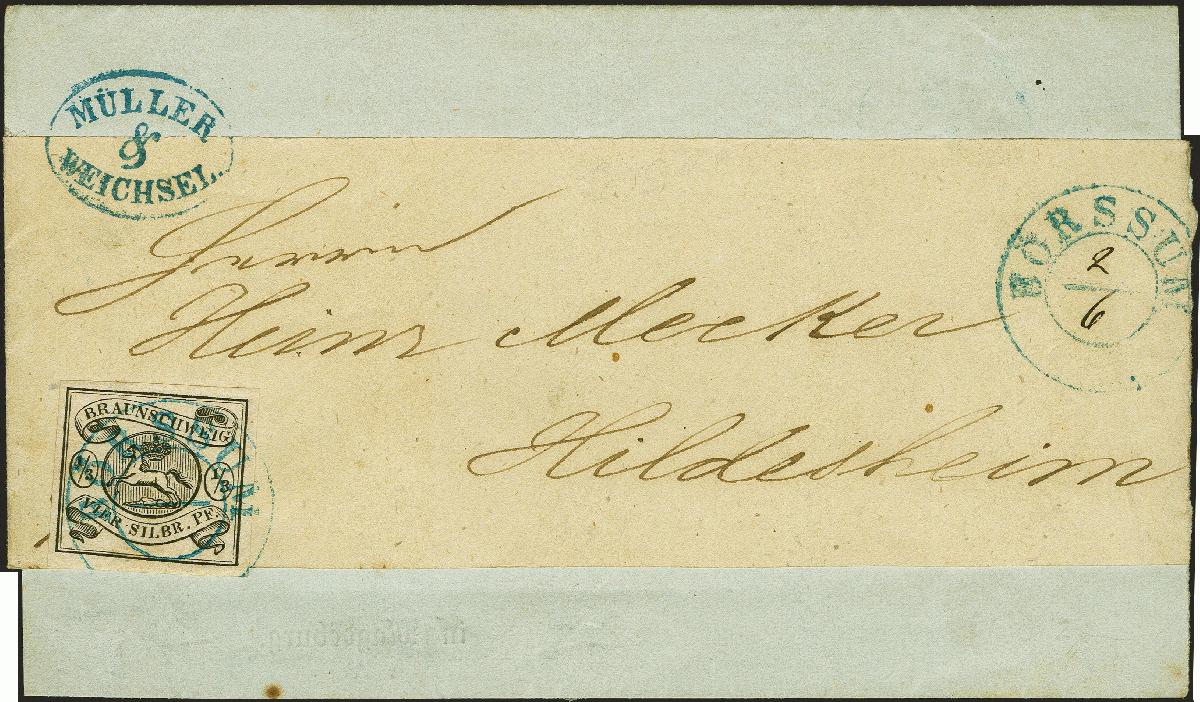 MÜLLER
&
WEICHSEL.
BÖRSSUM
2
6
Herrn
Heinr Mecker
Hildesheim
BRAUNSCHWEIG
1/3 1/3
VIER SILBR. PF.
in Magdeburg